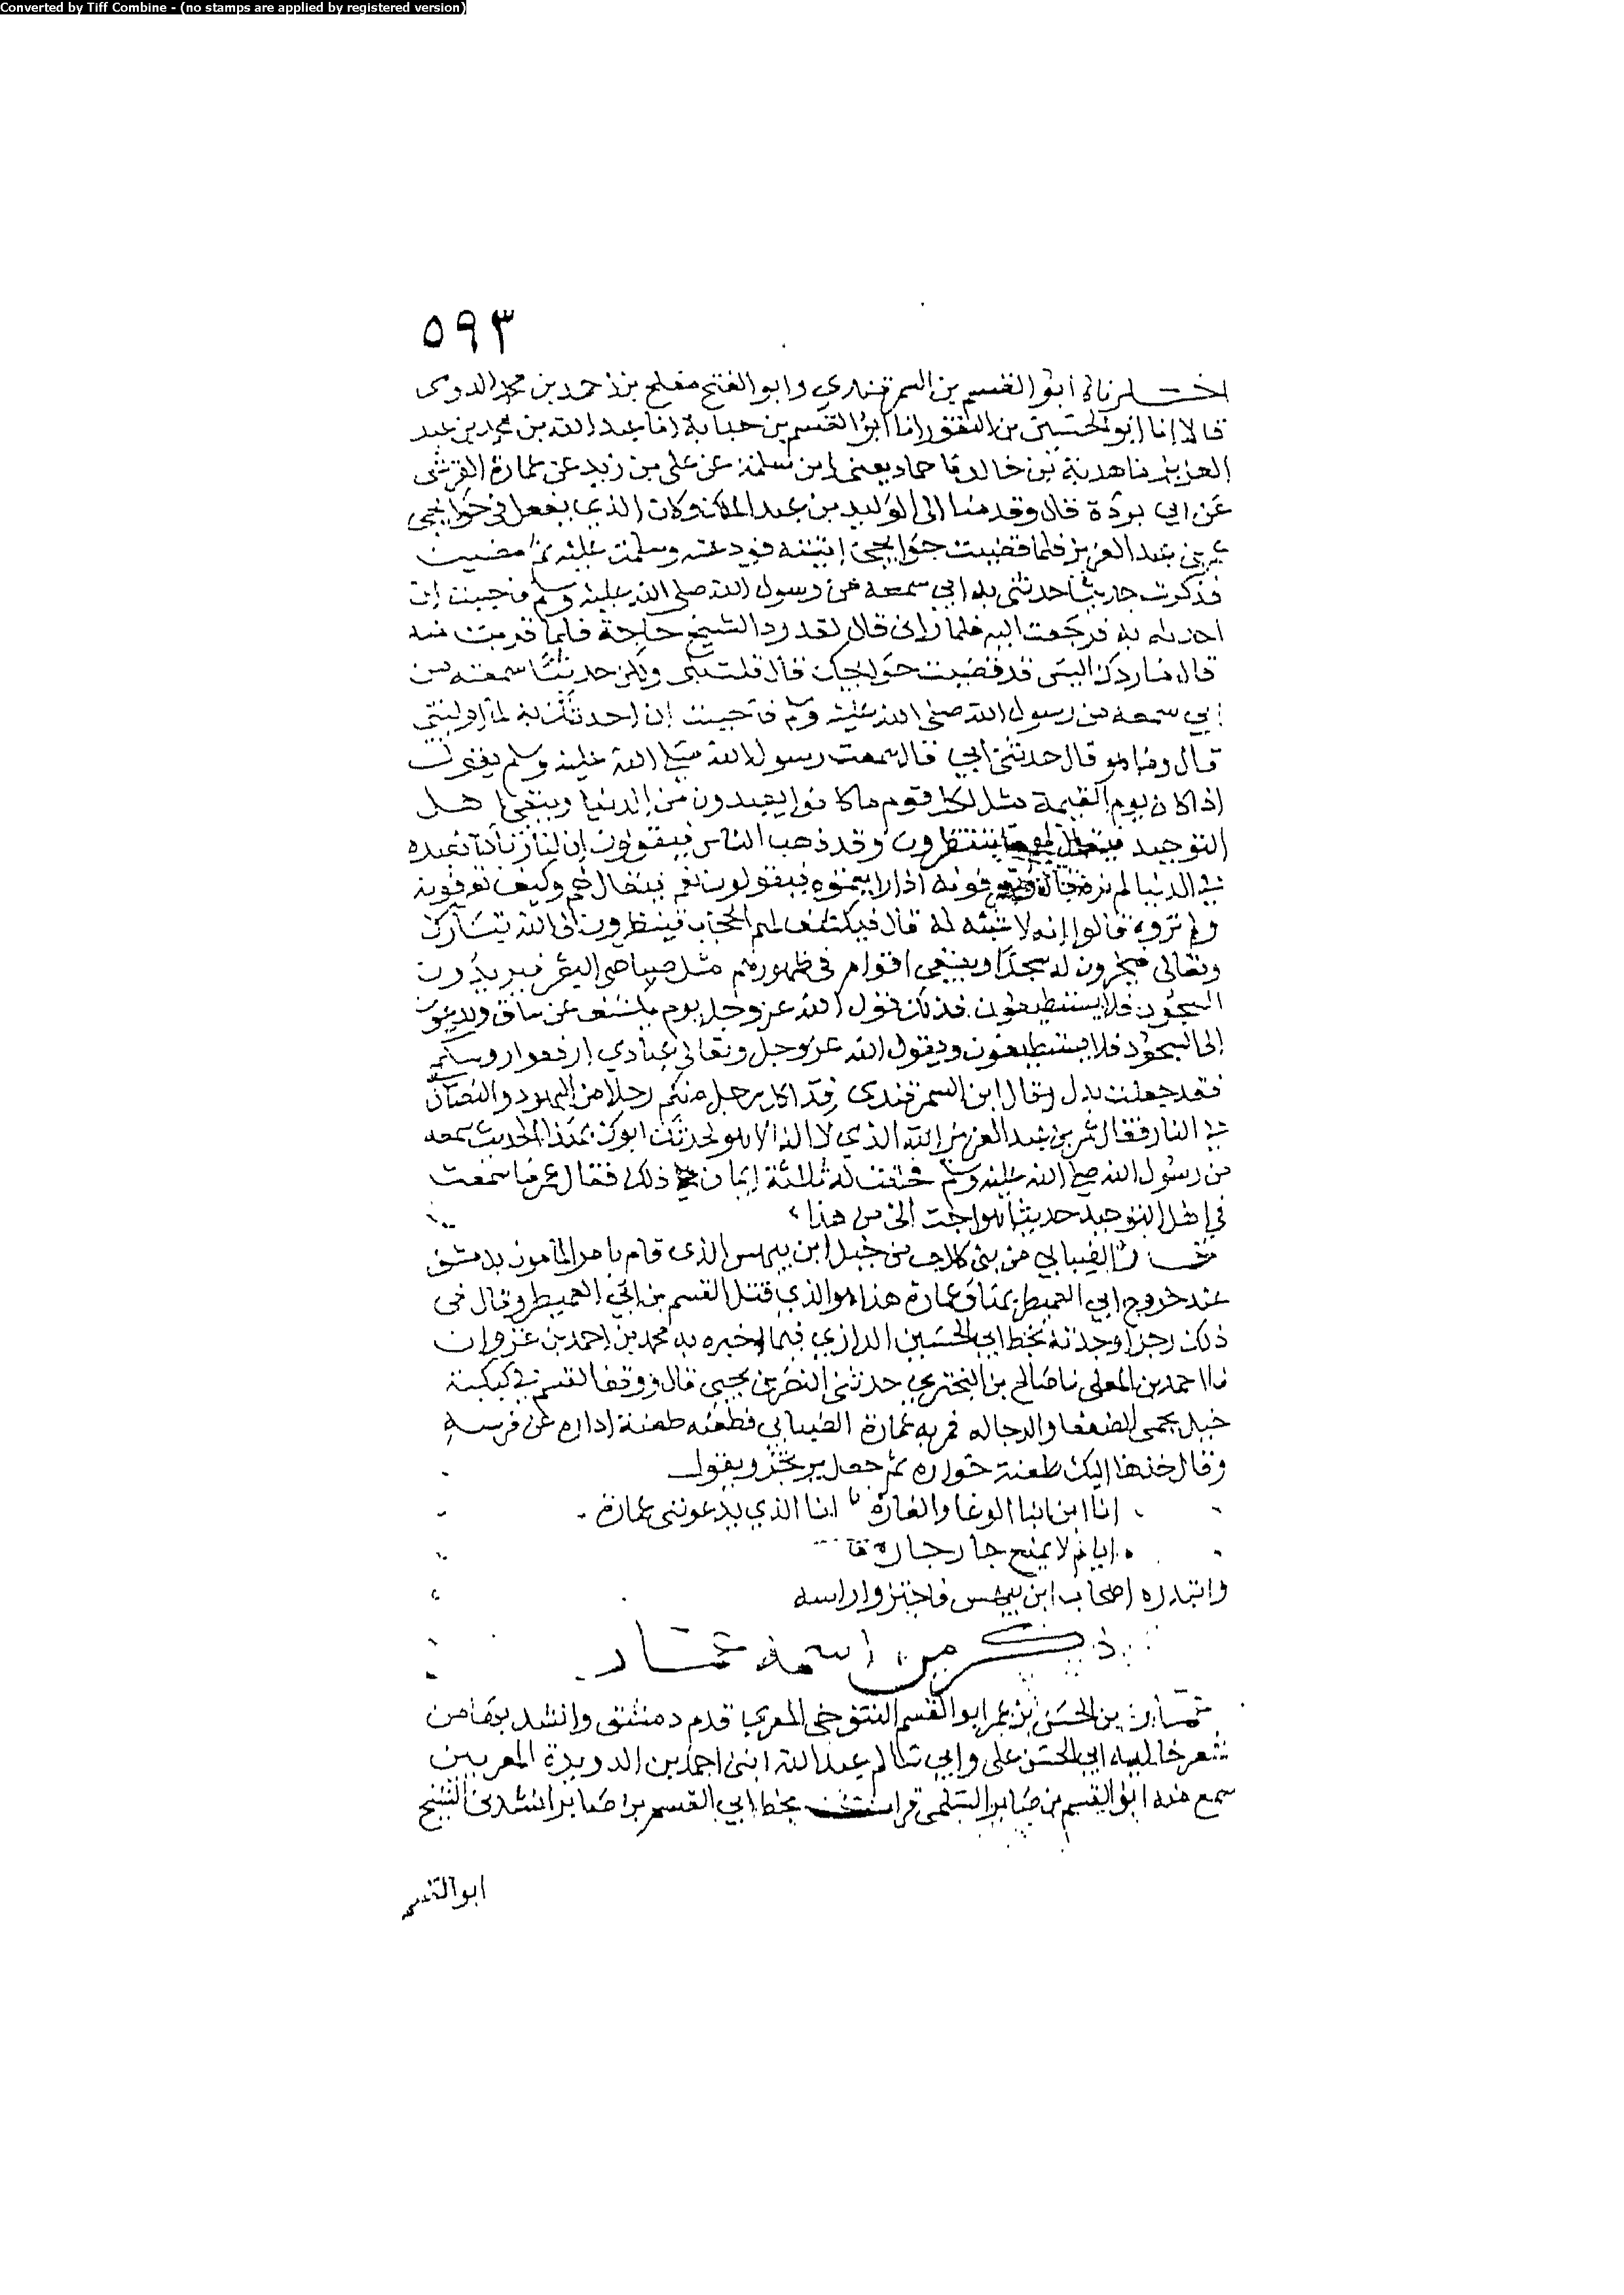 Converted by Tiff Combine - (no stamps are applied by registered version)
٥٩٣
اخبرنا ابو القسم بن السمرقندي وابو الفتح مفلح بن احمد بن محمد الدومى
قالا انا ابو الحسين بن النقور انا ابو القسم بن حبابة انا عبد الله بن محمد بن عبد
العزيز نا هدبة بن خالد نا حماد يعنى ابن سلمة عن على بن زيد عن عمارة القرشى
عن ابي بردة قال وفدنا الى الوليد بن عبد الملك وكان الذي يفعل في حوايجي
عمر بن عبد العزيز فلما قضيت حوايجي اتيته فودعته وسلمت عليه ثم مضيت
فذكرت حديثا حدثني به ابي سمعه من رسول الله صلى الله عليه وسلم فاحببت ان
احدثه به فرجعت اليه فلما راني قال لقد رد الشيخ حاجة فلما قربت منه
قال ما ردك اليس قد قضيت حوايجك قال قلت بلى ولكن حديثا سمعته من
ابي سمعه من رسول الله صلى الله عليه وسلم فاحببت ان احدثك به لما اوليتني
قال وما هو قال حدثني ابي قال سمعت رسول الله صلى الله عليه وسلم يقول
اذا كان يوم القيمة مثل لكل قوم ما كانوا يعبدون من الدنيا ويبقى اهل
التوحيد فيقال لهم ما تنتظرون وقد ذهب الناس فيقولون ان لنا ربا كنا نعبده
في الدنيا لم نره قال وتعرفونه اذا رايتموه فيقولون نعم فيقال لهم وكيف تعرفونه
ولم تروه قالوا انه لا شبه له قال فيكشف لهم الحجاب فينظرون الى الله تبارك
وتعالى فيخرون له سجدا ويبقى اقوام في ظهورهم مثل صياصي البقر فيريدون
السجود فلا يستطيعون فذلك قول الله عز وجل يوم يكشف عن ساق ويدعون
الى السجود فلا يستطيعون ويقول الله عز وجل وتعالى عبادي ارفعوا روسكم
فقد جعلت بدل وقال ابن السمرقندي فدا كل رجل منكم رجلا من اليهود والنصارى
في النار فقال عمر بن عبد العزيز الله الذي لا اله الا هو لحدثك ابوك بهذا الحديث سمعه
من رسول الله صلى الله عليه وسلم فحلفت له ثلثة ايمان على ذلك فقال عمر ما سمعت
في اهل التوحيد حديثا هو احب الي من هذا
عمارة الضبابي من بني كلاب من خيل ابن بيهس الذي قام بامر المامون بدمشق
عند خروج ابي العميطر بها وعمارة هذا هو الذي قتل القسم بن ابي العميطر وقال في
ذلك رجزا وجدته بخط ابي الحسين الرازي فيما اخبره به محمد بن احمد بن غزوان
نا احمد بن المعلى نا صالح بن البختري حدثني النضر بن يحيى قال ووقف القسم في كبكبة
خيل يحمى الضعفا والرجاله فمر به عمارة الضبابي فطعنه طعنة اداره عن فرسه
وقال خذها اليك طعنة خواره ثم جعل يرتجز ويقول
انا ابن ابنا الوغا والغارة انا الذي يدعونني عمارة
ايانم لا يمنع جار جاره
وابتدره اصحاب ابن بيهس فاحتزوا راسه
ذكر من اسمه عمار
عمار بن الحسن بن عمر ابو القسم التنوخي المعري قدم دمشق وانشد بها من
شعر خاليه ابي الحسن على وابي سالم عبد الله ابنى احمد بن الدويدة المعريين
سمع منه ابو القسم بن صابر السلمى قرات بخط ابي القسم بن صابر انشدني الشيخ
ابو القسم